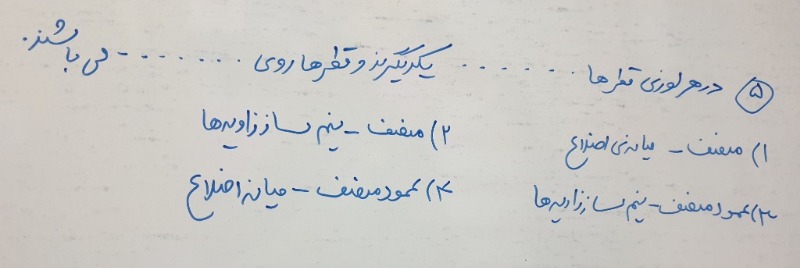 ۵) در هر لوزی قطرها ....... یکدیگرند و قطرها روی ....... می باشند.
۱) منصف - میانه‌ی اضلاع
۲) منصف - نیم ساز زاویه‌ها
۳) عمود منصف - نیم ساز زاویه‌ها
۴) عمود منصف - میانه اضلاع